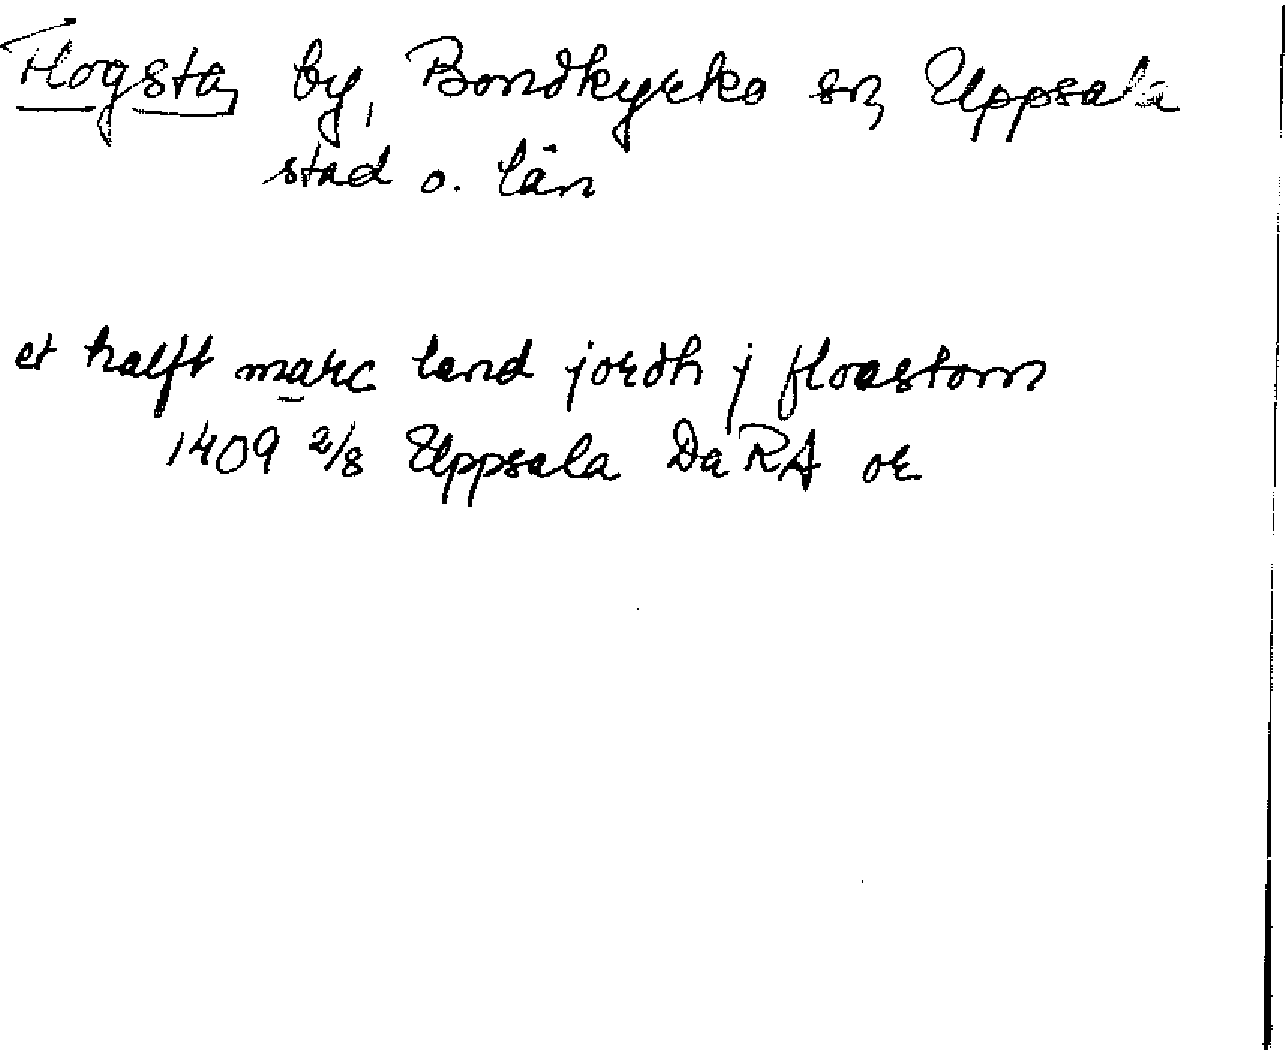 Flogsta by, Bondkyrko sn, Uppsala
stad o. län
et halft marc land jordh j floastom
1409 2/8 Uppsala Da RA or